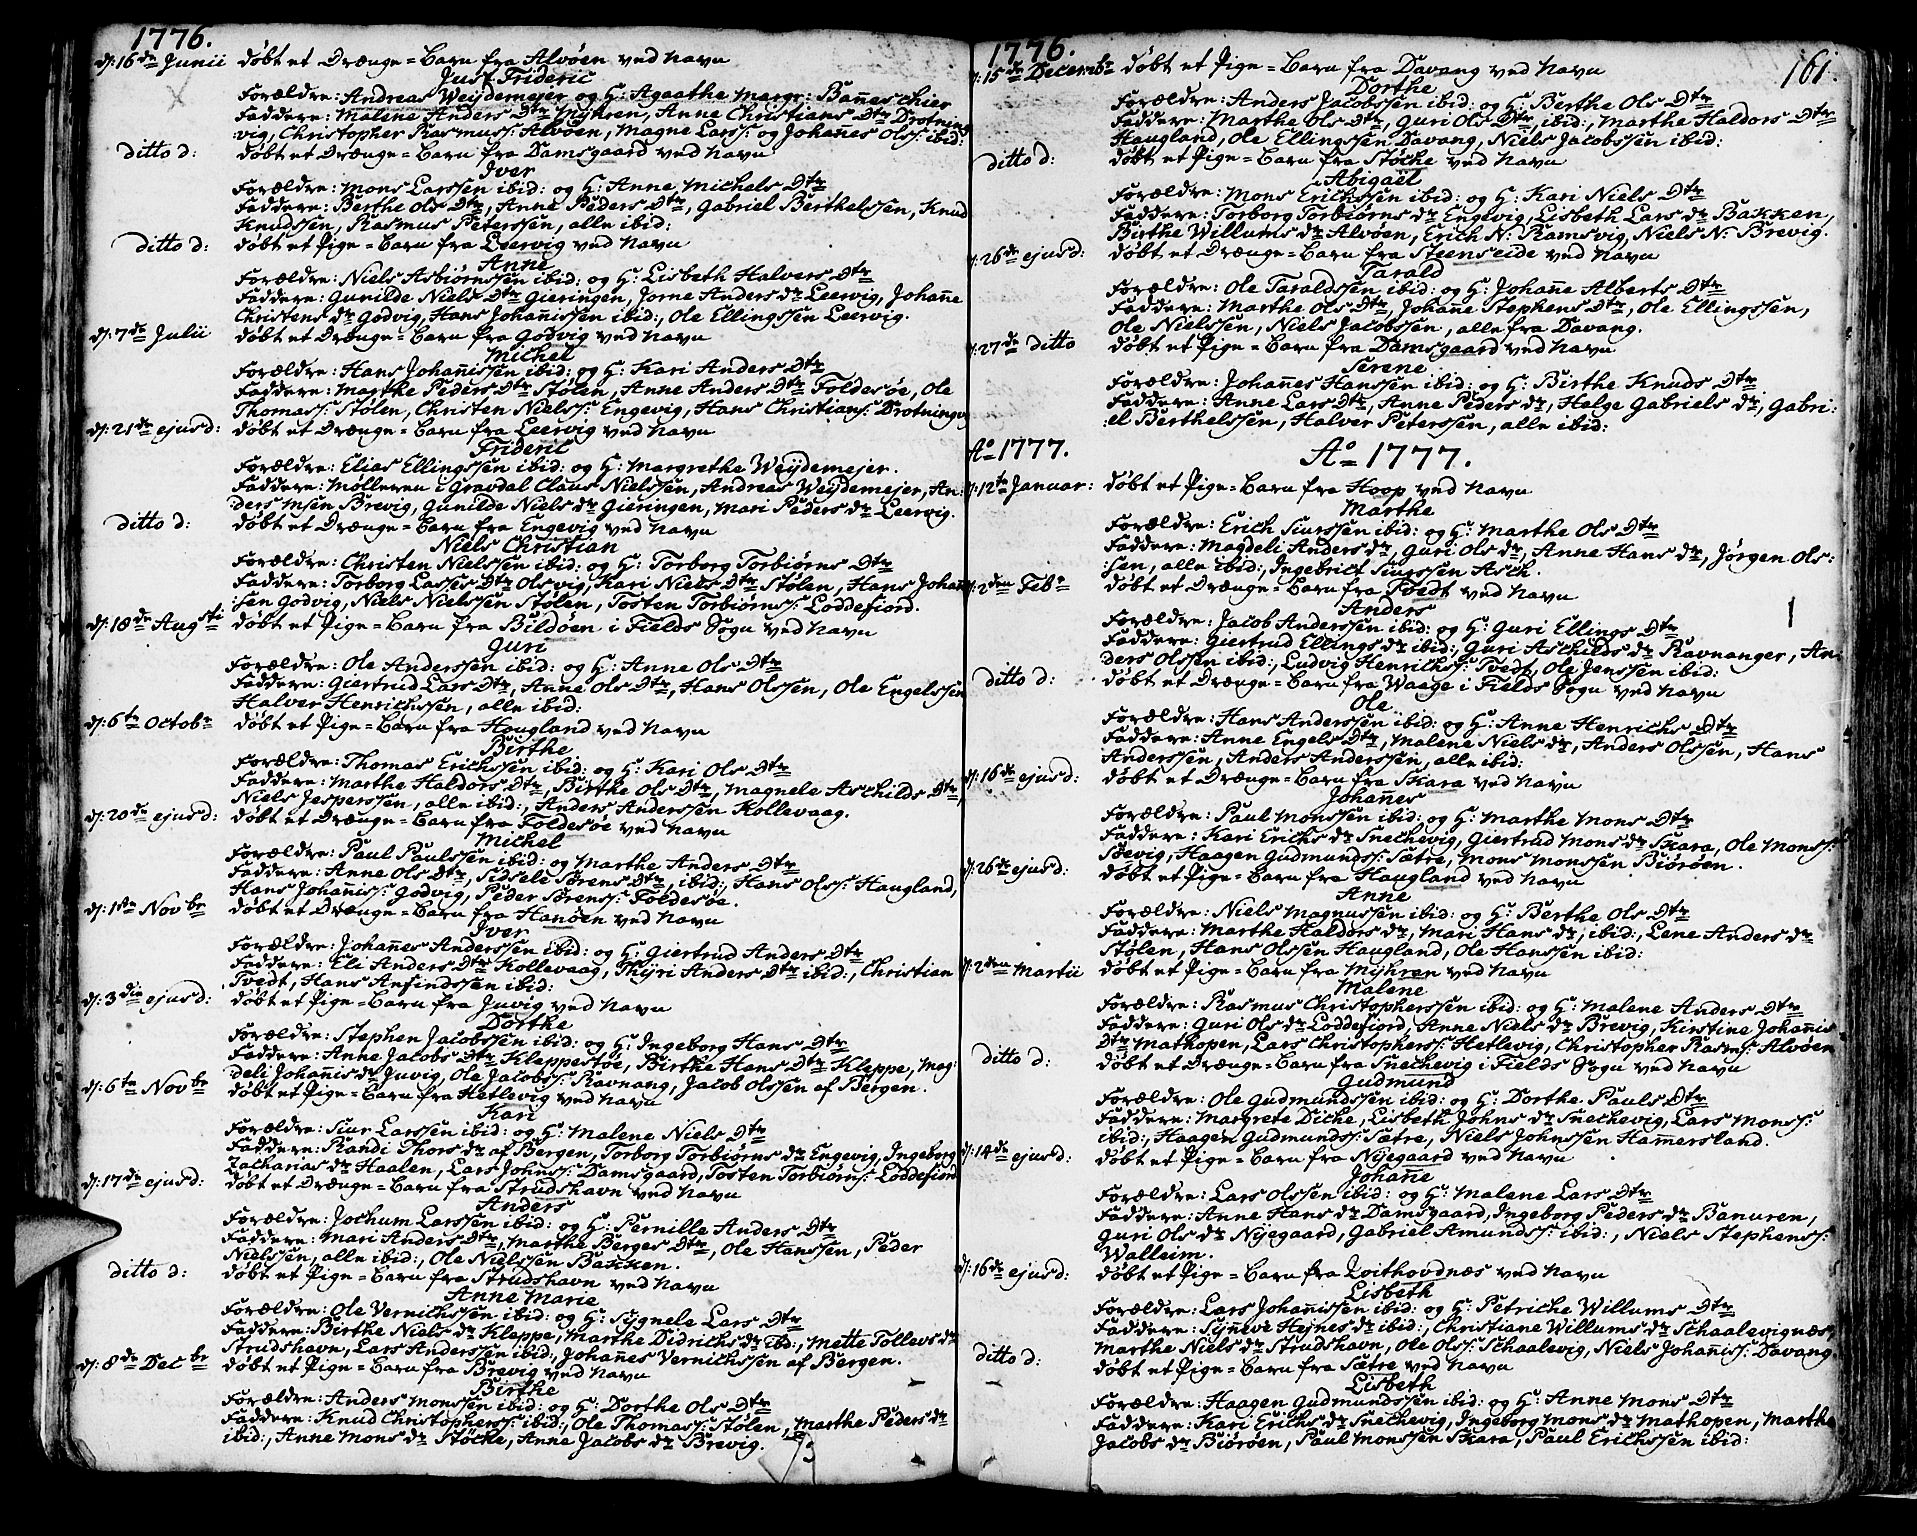 1776.
d: 16de Junii døbt et Drænge=Barn fra Alvøen ved Navn
Just Frideric
Forældre: Andreas Weydemejer og H: Agaathe Margr: Banneschier
Faddere: Malene Anders Dtr Myhren, Anne Christians Dtr Drotning-
vig, Christopher Rasmuss: Alvøen, Magne Larss: og Johanes Ols: ibid:
ditto d: døbt et Drænge=Barn fra Damsgaard ved Navn
Iver
Forældre: Mons Larssen ibid: og H: Anne Michels Dtr
Faddere: Berthe Ols Dtr, Anne Peders Dtr, Gabriel Berthelssen, Knud
Knudssen, Rasmus Peterssen, alle ibid:
ditto d: døbt et Pige=Barn fra Leervig ved Navn
Anne
Forældre: Niels Asbiørnssen ibid: og H: Lisbeth Halvers Dtr
Faddere: Gunilde Niels Dtr Gieringen, Jorne Anders dr Leervig, Johanne
Christens dr Godvig, Hans Johanissen ibid:, Ole Ellingssen Leervig.
d: 7de Julii døbt et Drænge=Barn fra Godvig ved Navn
Michel
Forældre: Hans Johanissen ibid: og H: Kari Anders Dtr
Faddere: Marthe Peders Dtr Stølen, Anne Anders Dtr Foldesøe, Ole
Thomass: Stølen, Christen Nielss: Engevig, Hans Christians: Drotningvig
d: 21de ejusd: døbt et Drænge=Barn fra Leervig ved Navn
Frideric
Forældre: Elias Ellingssen ibid: og H: Margrethe Weydemejer.
Faddere: Mølleren i Gravdal Claus Nielssen, Andreas Weydemejer, An-
ders Msen Brevig, Gunilde Niels dr Gieringen, Mari Peders dr Leervig.
ditto d: døbt et Drænge=Barn fra Engevig ved Navn
Niels Christian
Forældre: Christen Nielssen ibid: og H: Torborg Torbiørns Dtr
Faddere: Torborg Lasses Dtr Olsvig, Kari Niels Dtr Stølen, Hans Johan-
:sen Godvig, Niels Nielssen Stølen, Tosten Torbiørns: Loddefiord.
d: 18de Augsti døbt et Pige=Barn fra Bildøen i Fields Sogn ved Navn
Guri
Forældre: Ole Anderssen ibid: og H: Anne Ols Dtr
Faddere: Giertrud Lars Dtr, Anne Ols Dtr, Hans Olssen, Ole Engelssen
Halver Henrichssen, alle ibid:
d: 6te Octobr døbt et Pige=Barn fra Hougland ved Navn
Birthe
Forældre: Thomas Erichssen ibid: og H: Kari Ols Dtr
Faddere: Marthe Haldors Dtr, Birthe Ols Dtr, Magnele Aschilds Dtr,
Niels Jesperssen, alle ibid:, Anders Anderssen Kollevaag.
d: 20de ejusd: døbt et Drænge=Barn fra Foldesøe ved Navn
Michel
Forældre: Paul Paulssen ibid: og Marthe Anders Dtr
Faddere: Anne Ols Dtr, Sidsele Sørens Dtr, ibid:, Hans Ols: Haugland,
Hans Johanis: Godvig, Peder Sørens: Foldesøe.
d: 1ste Novbr døbt et Drænge=Barn fra Hanøen ved Navn
Iver
Forældre: Johanes Anderssen ibid: og H: Giertrud Anders Dtr
Faddere: Eli Anders Dtr Kollevaag, Thyri Anders Dtr ibid:, Christian
Tvedt, Hans Anfindssen ibid:
d: 3die ejusd: døbt et Pige=Barn fra Juvig ved Navn
Dorthe
Forældre: Stephen Jacobssen ibid: og H: Ingeborg Hans Dtr
Faddere: Anne Jacobs Dtr Kleppestøe, Birthe Hans Dtr Kleppe, Mag-
deli Johanis dr Juvig, Ole Jacobs: Ravnang, Jacob Olssen af Bergen.
d: 6te Novbr døbt et Pige=Barn fra Hetlevig ved Navn
Kari
Forældre: Siur Larssen ibid: og H: Malene Niels Dtr
Faddere: Randi Thors dr af Bergen, Torborg Torbiørns dr Engevig, Ingeborg
Zacharias dr Haalen, Lars Johns: Damsgaard, Tosten Torbiørns: Loddefiord
d: 17de ejusd: døbt et Drænge=Barn fra Strudshavn ved Navn
Anders
Forældre: Jochum Larssen ibid: og H: Pernille Anders Dtr
Faddere: Mari Anders Dtr, Marthe Berges Dtr, Ole Hanssen, Peder
Nielssen, alle ibid:, Ole Nielssen Bakken.
ditto d: døbt et Pige=Barn fra Strudshavn ved Navn
Anne Marie
Forældre: Ole Vernichssen ibid: og H: Sygnele Lars Dtr
Faddere: Birthe Niels dr Kleppe, Marthe Didrichs dr ibd:, Mette Tollevs dr
Strudshavn, Lars Anderssen ibid:, Johanes Vernichssen af Bergen.
d: 8de Decbr døbt et Pige=Barn fra Brevig ved Navn
Birthe
Forældre: Anders Monssen ibid: og H: Dorthe Ols Dtr
Faddere: Knud Christophers: ibid:, Ole Thomas: Stølen, Marthe Peders dr
ibid:, Anne Mons dr Støche, Anne Jacobs dr Brevig.
1776.
161.
d: 15de Decembr døbt et Pige=Barn fra Davang ved Navn
Dorthe
Forældre: Anders Jacobssen ibid: og H: Berthe Ols Dtr
Faddere: Marthe Ols Dtr, Guri Ols Dtr, ibid:, Marthe Haldors Dtr
Haugland, Ole Ellingssen Davang, Niels Jacobssen ibid:
ditto d: døbt et Pige=Barn fra Støche ved Navn
Abigaël
Forældre: Mons Erichssen ibid: og H: Kari Niels Dtr
Faddere: Torborg Torbiørns dr Engevig, Lisbeth Lars dr Bakken,
Birthe Willums dr Alvøen, Erich N: Ramsvig, Niels N: Brevig.
d: 26de ejusd: døbt et Drænge=Barn fra Steenseide ved Navn
Tarald
Forældre: Ole Taraldssen ibid: og H: Johanne Alberts Dtr
Faddere: Marthe Ols Dtr, Johane Stephens Dtr, Ole Ellingssen,
Ole Nielssen, Niels Jacobssen, alle fra Davang.
d: 27de ditto døbt et Pige=Barn fra Damsgaard ved Navn
Serene
Forældre: Johanes Hanssen ibid: og H: Birthe Knuds Dtr
Faddere: Anne Lars Dtr, Anne Peders dr, Halge Gabriels dr, Gabri-
:el Berthelssen, Halver Peterssen, alle ibid:
Ao 1777. Ao 1777.
d: 12te Januar: døbt et Pige=Barn fra Hoop ved Navn
Marthe
Forældre: Erich Siurssen ibid: og H: Marthe Ols Dtr
Faddere: Magdeli Anders dr, Guri Ols dr, Anne Hans dr, Jørgen Ols:
:sen, alle ibid:, Ingebrict Siurssen Asch.
d: 2den Febr døbt et Drænge=Barn fra Tvedt ved Navn
Anders
Forældre: Jacob Anderssen ibid: og H: Guri Ellings Dtr
Faddere: Giertrud Ellings dr ibid:, Guri Aschilds dr Ravnanger, An-
ders Olssen ibid:, Ludvig Henrichs: Tvedt, Ole Jenssen ibid:
ditto d: døbt et Drænge=Barn fra Waage i Fields Sogn ved Navn
Ole
Forældre: Hans Anderssen ibid: og H: Anne Henrichs Dtr
Faddere: Anne Engels Dtr, Malene Niels dr, Anders Olssen, Hans
Anderssen, Anders Anderssen, alle ibid:
d: 16de ejusd: døbt et Drænge=Barn fra Skara ved Navn
Johanes
Forældre: Paul Monssen ibid: og H: Marthe Mons Dtr
Faddere: Kari Erichs dr Snechevig, Giertrud Mons dr Skara, Ole Mons:
Søevig, Haagen Gudmunds: Sætre, Mons Monssen Biørøen.
d: 26de ejusd: døbt et Pige=Barn fra Haugland ved Navn
Anne
Forældre: Niels Magnussen ibid: og H: Berthe Ols Dtr
Faddere: Marthe Haldors dr, Mari Hans dr, ibid:, Lene Anders dr
Stølen, Hans Olssen Haugland, Ole Hanssen ibid:
d: 2den Martii døbt et Pige=Barn fra Myhren ved Navn
Malene
Forældre: Rasmus Christopherssen ibid: og H: Malene Anders Dtr
Faddere: Guri Ols dr Loddefiord, Anne Niels dr Brevig, Kirstine Johanis
Dtr Mathopen, Lars Christophers: Hetlevig, Christopher Rasms: Alvøen
ditto d: døbt et Drænge=Barn fra Snechevig i Fields Sogn ved Navn
Gudmund
Forældre: Ole Gudmundssen ibid: og H: Dorthe Pauls Dtr
Faddere: Margrete Diche, Lisbeth Johns dr Snechevig, Lars Mons:
ibid:, Haagen Gudmunds: Sætre, Niels Johnssen Hamersland.
d: 14de ejusd: døbt et Pige=Barn fra Nyegaard ved Navn
Johane
Forældre: Lars Olssen ibid: og H: Malene Lars Dtr
Faddere: Anne Hans dr Damsgaard, Ingeborg Peders dr Banuren,
Guri Ols dr Nyegaard, Gabriel Amunds: ibid:, Niels Stephens:
Walleim.
d: 16de ejusd: døbt et Pige=Barn fra Qvithovdnæs ved Navn
Lisbeth
Forældre: Lars Johanissen ibid: og H: Petriche Willums Dtr
Faddere: Synneve Hejnes dr ibid:, Christiane Willums dr Schaalevignæs,
Marthe Niels dr Strudshavn, Ole Ols: Schaalevig, Niels Johanis: Davang.
ditto d: døbt et Pige=Barn fra Sætre ved Navn
Lisbeth
Forældre: Haagen Gudmundssen ibid: og H: Anne Mons Dtr
Faddere: Kari Erichs dr Snechevig, Ingeborg Mons dr Mathopen, Marthe
Jacobs dr Biørøen, Paul Monssen Skara, Paul Erichssen ibid: